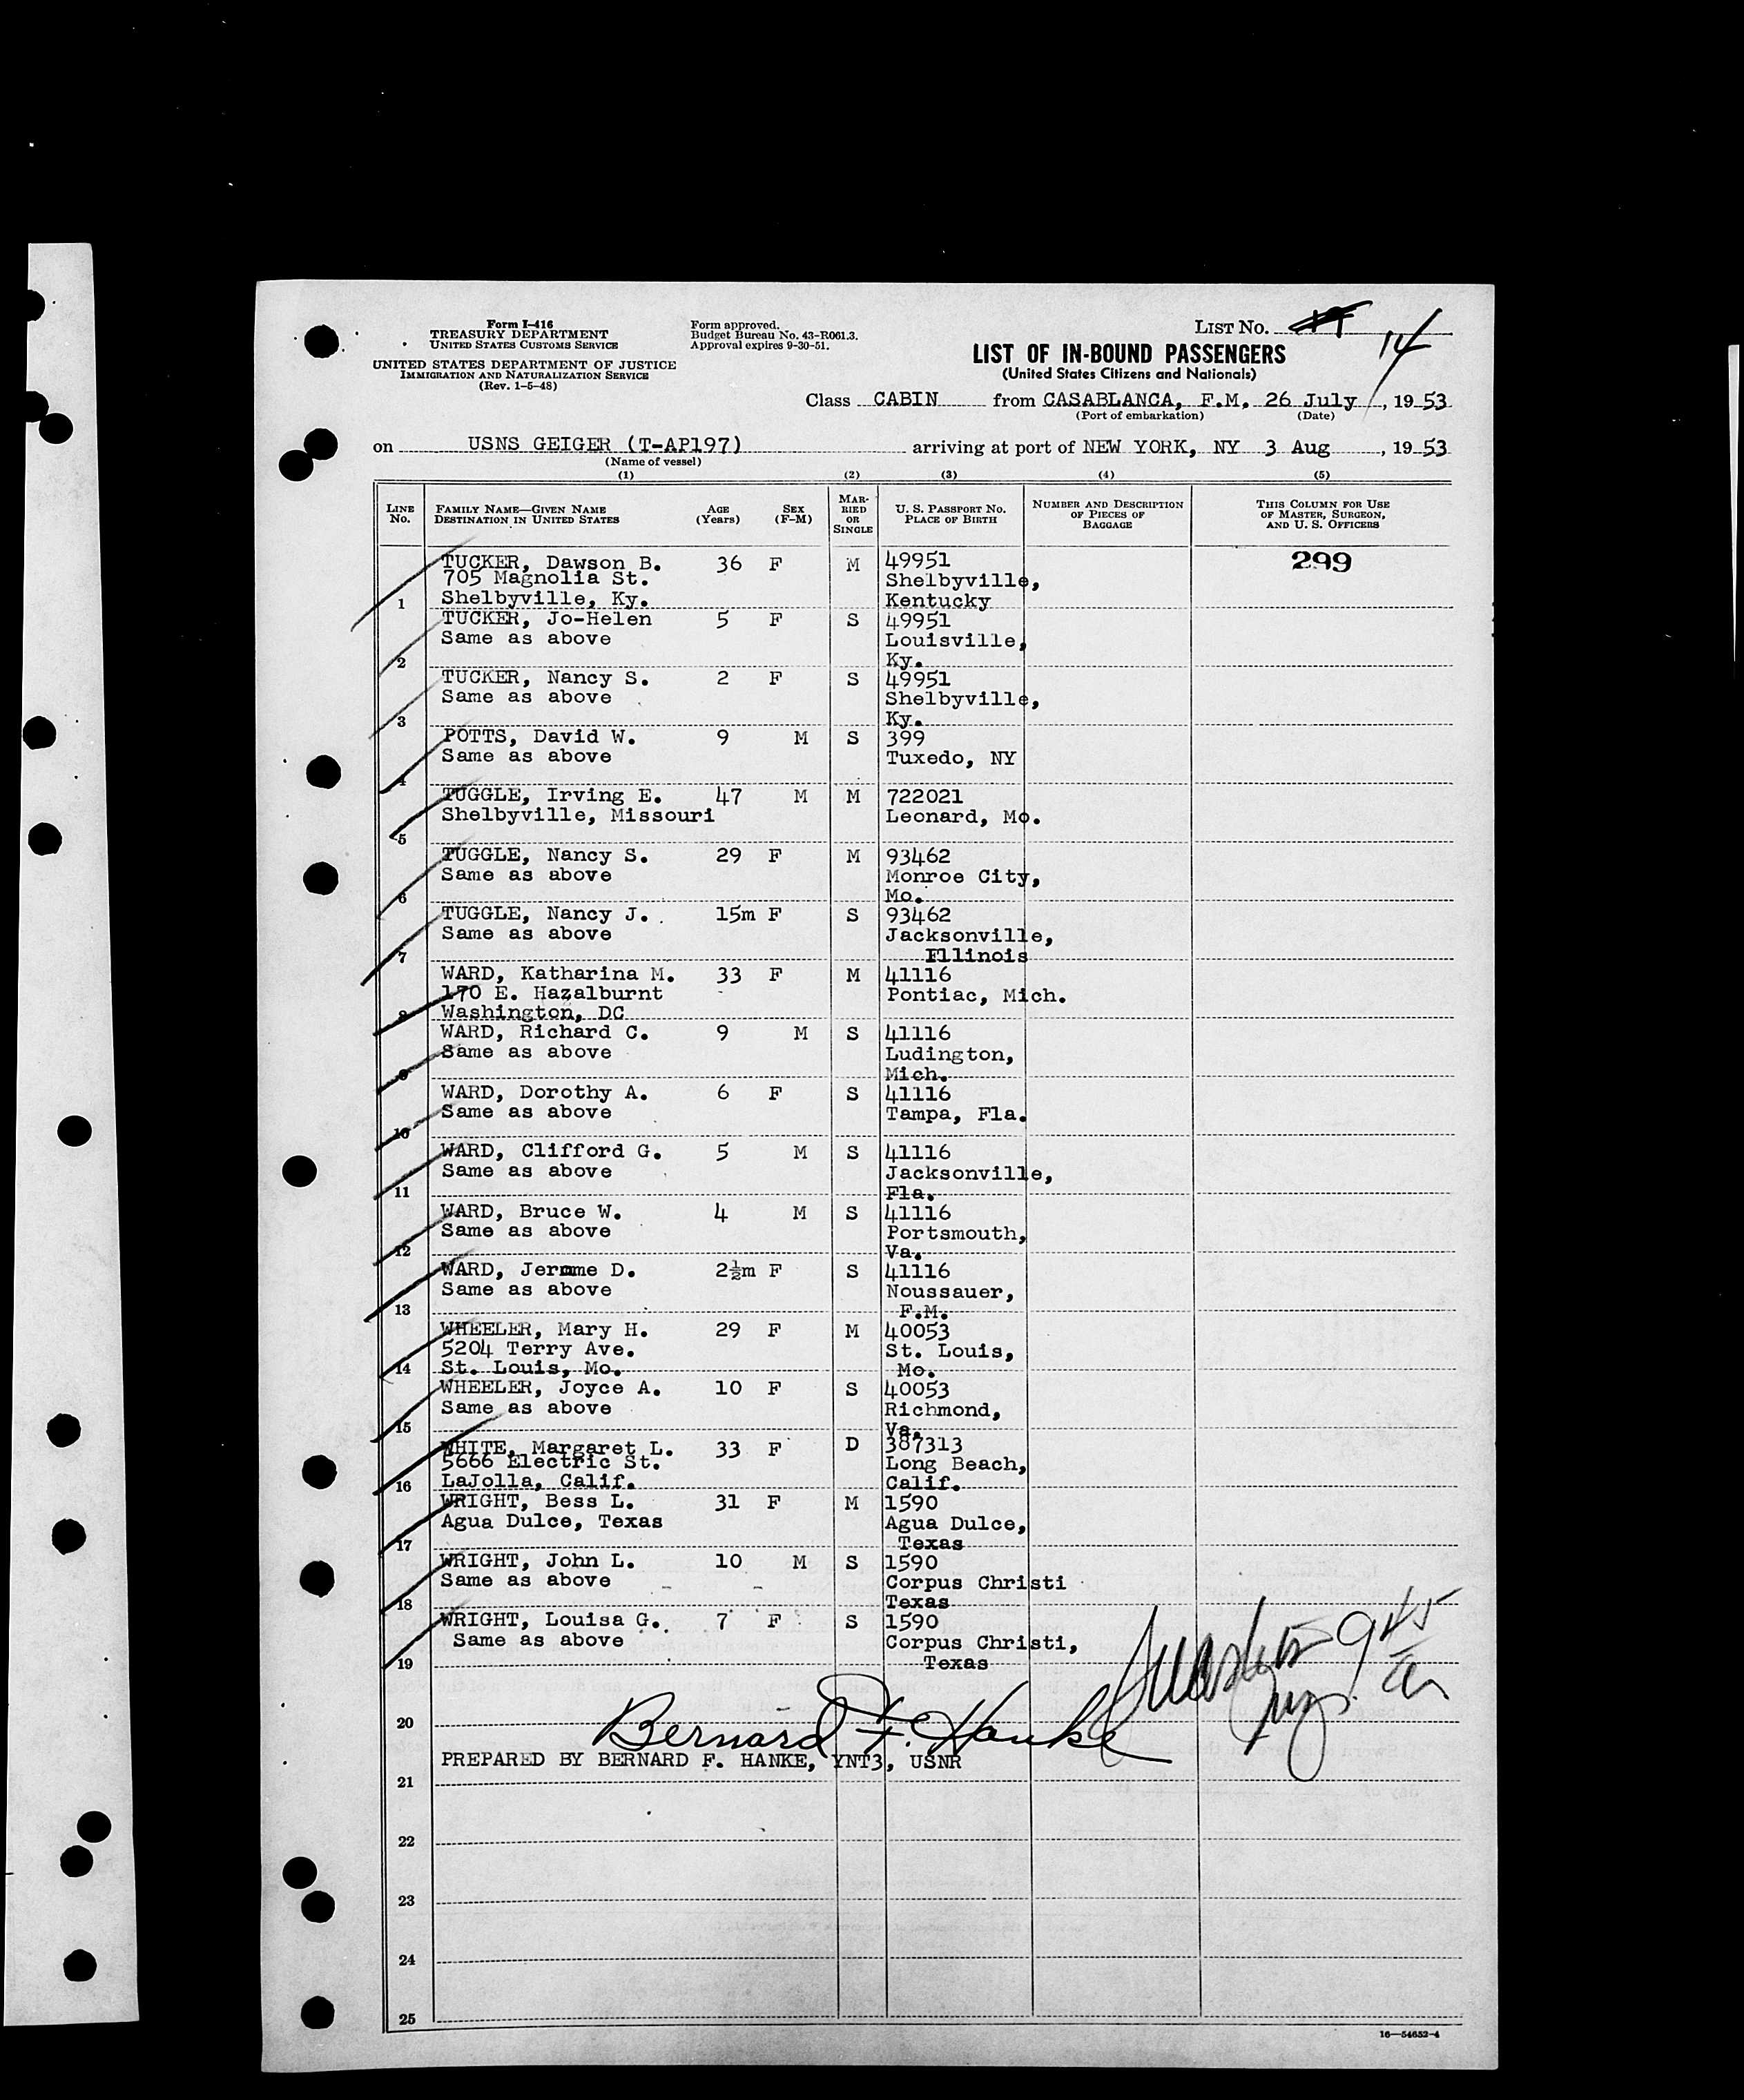 Form I-416
TREASURY DEPARTMENT
UNITED STATES CUSTOMS SERVICE
UNITED STATES DEPARTMENT OF JUSTICE
IMMIGRATION AND NATURALIZATION SERVICE
(Rev. 1-5-48)
Form approved.
Budget Bureau No. 43-R061.3.
Approval expires 9-30-51.
LIST NO. 14
LIST OF IN-BOUND PASSENGERS
(United States Citizens and Nationals)
Class CABIN from CASABLANCA, F.M. 26 July, 1953
(Port of embarkation) (Date)
on USNS GEIGER (T-AP197) arriving at port of NEW YORK, NY 3 Aug, 1953
(Name of vessel)
(1) (2) (3) (4) (5)
LINE NO. FAMILY NAME—GIVEN NAME DESTINATION IN UNITED STATES AGE (Years) SEX (F-M) MARRIED OR SINGLE U. S. PASSPORT NO. PLACE OF BIRTH NUMBER AND DESCRIPTION OF PIECES OF BAGGAGE THIS COLUMN FOR USE OF MASTER, SURGEON, AND U. S. OFFICERS
TUCKER, Dawson B. 36 F M 49951 299
705 Magnolia St. Shelbyville,
1 Shelbyville, Ky. Kentucky
TUCKER, Jo-Helen 5 F S 49951
Same as above Louisville,
2 Ky.
TUCKER, Nancy S. 2 F S 49951
Same as above Shelbyville,
3 Ky.
POTTS, David W. 9 M S 399
Same as above Tuxedo, NY
4
TUGGLE, Irving E. 47 M M 722021
Shelbyville, Missouri Leonard, Mo.
5
TUGGLE, Nancy S. 29 F M 93462
Same as above Monroe City,
6 Mo.
TUGGLE, Nancy J. 15m F S 93462
Same as above Jacksonville,
7 Illinois
WARD, Katharina M. 33 F M 41116
170 E. Hazalburnt Pontiac, Mich.
8 Washington, DC
WARD, Richard C. 9 M S 41116
Same as above Ludington,
9 Mich.
WARD, Dorothy A. 6 F S 41116
Same as above Tampa, Fla.
10
WARD, Clifford G. 5 M S 41116
Same as above Jacksonville,
11 Fla.
WARD, Bruce W. 4 M S 41116
Same as above Portsmouth,
12 Va.
WARD, Jerome D. 2½m F S 41116
Same as above Noussauer,
13 F.M.
WHEELER, Mary H. 29 F M 40053
5204 Terry Ave. St. Louis,
14 St. Louis, Mo. Mo.
WHEELER, Joyce A. 10 F S 40053
Same as above Richmond,
15 Va.
WHITE, Margaret L. 33 F D 387313
5666 Electric St. Long Beach,
16 LaJolla, Calif. Calif.
WRIGHT, Bess L. 31 F M 1590
Agua Dulce, Texas Agua Dulce,
17 Texas
WRIGHT, John L. 10 M S 1590
Same as above Corpus Christi
18 Texas
WRIGHT, Louisa G. 7 F S 1590
Same as above Corpus Christi,
19 Texas
20 Bernard F. Hanke
PREPARED BY BERNARD F. HANKE, YNT3, USNR
21
22
23
24
25
16—54652-4